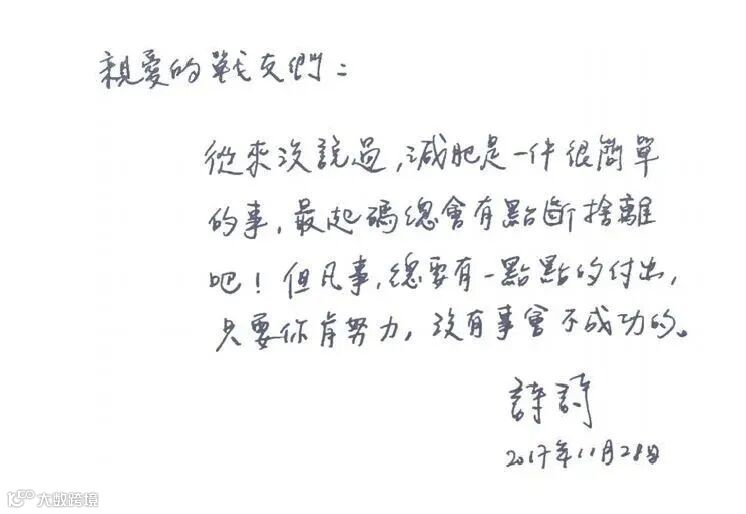 親愛的戰友們：
從來沒說過，減肥是一件很簡單
的事，最起碼總會有點斷捨離
吧！但凡事，總要有一點點的付出，
只要你肯努力，沒有事會不成功的。
詩詩
2017年11月28日
大数跨境